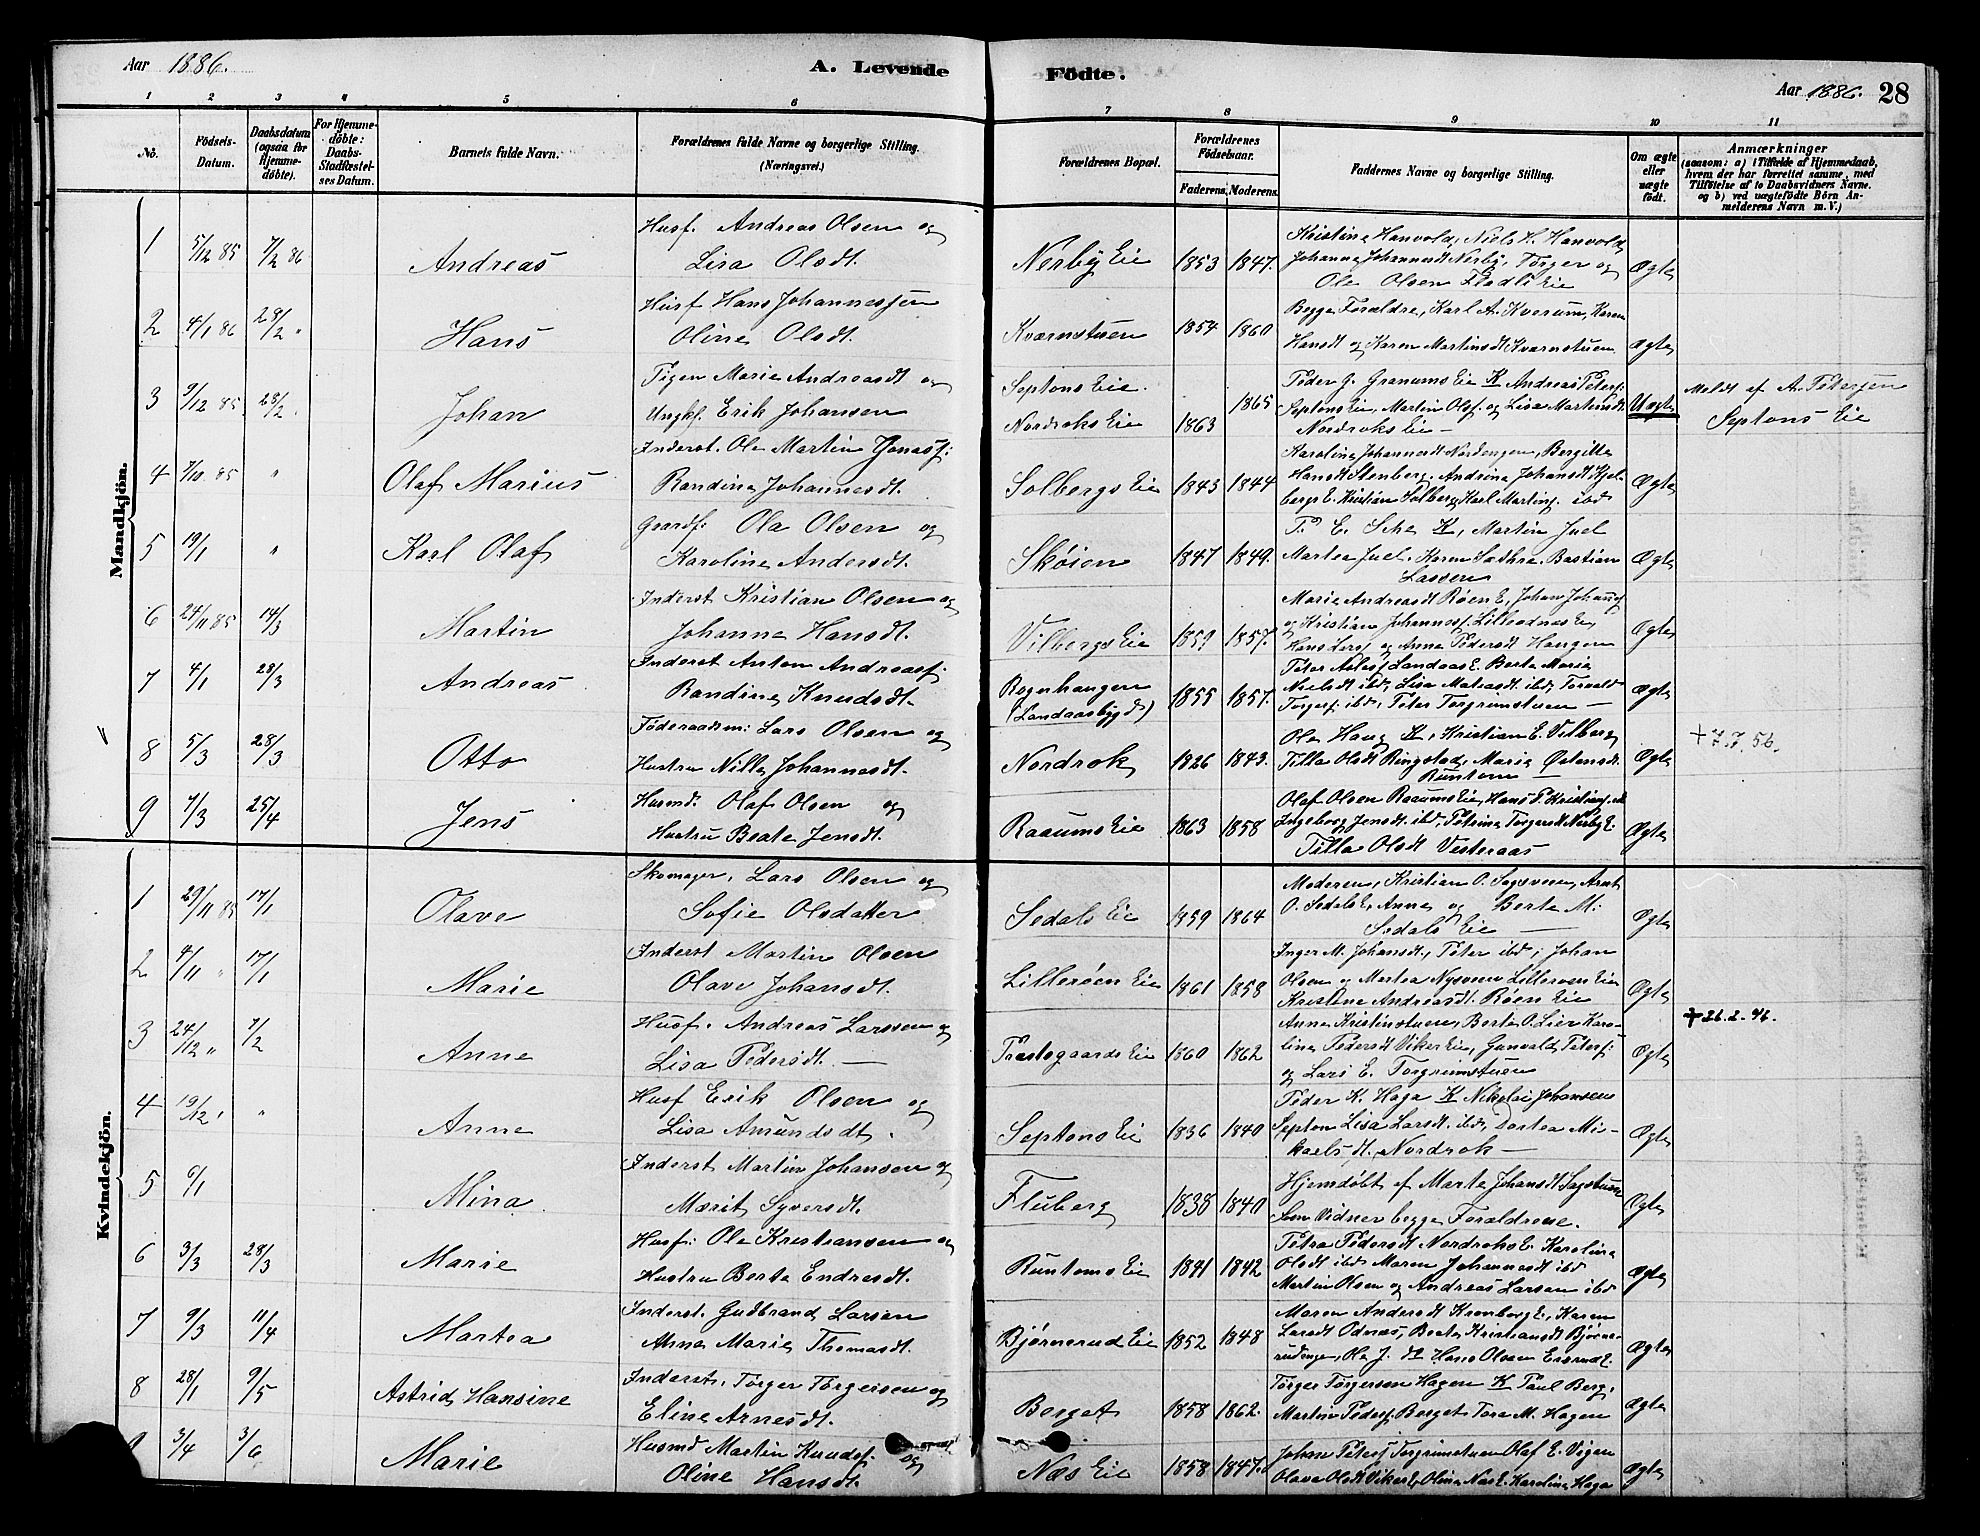 Aar 1886. A. Levende Födte. Aar 1886. 28
1 2 3 4 5 6 7 8 9 10 11
No. Födsels-Datum. Daabsdatum (ogsaa for Hjemmedöbte). For Hjemmedöbte: Daabs-Stadfæstelses Datum. Barnets fulde Navn. Forældrenes fulde Navne og borgerlige Stilling. (Næringsvei.) Forældrenes Bopæl. Forældrenes Födselsaar. Faderens. Moderens. Faddernes Navne og borgerlige Stilling. Om ægte eller uægte födt. Anmærkninger (saasom: a) i Tilfælde af Hjemmedaab, hvem der har forrettet samme, med Tilföielse af to Daabsvidners Navne, og b) ved uægtefödte Börn Anmelderens Navn m. V.)
Mandkjön.
1 5/12 85 7/2 86 Andreas Husf. Andreas Olsen og Lisa Olsdt. Nerby Eie 1853 1847. Kristine Hanvold, Niels H. Hanvold, Johanne Johannesdt Nerby, Torger og Ole Olsen Flodli Eie Ægte
2 4/1 86 28/2 " Hans Husf Hans Johannessen Oline Olsdt. Kværnstuen 1854 1860 Begge Forældre, Karl A. Kverum, Karen Hansdt og Karen Martinsdt Kværnstuen Ægte
3 9/12 85 28/2 Johan Pigen Marie Andreasdt og Ungkf. Erik Johansen Septons Eie. Nordroks Eie 1863 1865 Peder G. Granums Eie K Andreas Peters: Septons Eie, Martin Olsf. og Lisa Martinsdt. Nordroks Eie Uægte Meldt af A. Pedersen Septons Eie
4 7/10 85 " Olaf Marius Inderst. Ole Martin Jonasf: Randine Johannesdt. Solbergs Eie 1843 1844 Karoline Johannesdt Nordengen, Bergitte Hansdt Stenberg, Andrine Johansdt Kjelbergs E. Kristian Solberg, Karl Martinf. ibd Ægte
5 19/1 " Karl Olaf Gaardf: Ole Olsen og Karoline Andersdt. Skøien 1847 1849. P. E. K, Martin Juel Martea Juel. Karen Sæthre. Bastian Lassen Ægte
6 24/11 85 14/3 Martin Inderst Kristian Olsen og Johanne Hansdt. Vilbergs Eie 1859 1857. Marie Andreasdt Røen E, Johan Johansf og Kristian Johannesf. Lilleodnes Eie, og Anne Pedersdt Haugen Ægte
7 4/1 28/3 Andreas Inderst Anton Andreasf Randine Knudsdt. Rognhaugen (Landaasbygd) 1855 1857. Landaas E. Berte Marie Nielsdt ibd, Lisa Matiasdt. ibd, Torvald Torgersf: ibd, Peter Torgrimstuen Ægte
8 5/3 28/3 Otto Føderaadsm: Lars Olsen og Hustru Nille Johannesdt. Nordrok 1826 1843. Ole Haug K, Kristian E. Vilberg Tilla Olsdt Ringstad, Marie Østensdt. Runtom Ægte + 7.7.56.
9 7/3 25/4 Jens Husmd. Olaf Olsen og Hustru Beate Jensdt. Raaums Eie 1863 1858 Olaf Olsen Raaums Eie, Hans P. Kristiansf. Ingeborg Jensdt ibd, Petrine Torgersdt Nerby E. Tilla Olsdt Vesteraas Ægte
Kvindekjön.
1 29/11 85 17/1 Olave Skomager. Lars Olsen og Sofie Olsdatter Sedals Eie 1859 1864 Moderen, Kristian O. Sagsveen, Arnt O. Sedals E, Anne og Berte M: Sedals Eie Ægte
2 4/11 " 17/1 Marie Inderst Martin Olsen Olave Johansdt. Lillerøen Eie 1861 1858 Inger M. Johansdt., Peter ibd, Johan Olsen og Martea Nysveen Lillerøen Eie Kristine Andreasdt. Røen Eie Ægte
3 24/12 " 7/2 Anne Husf. Andreas Larssen og Lisa Pedersdt. Præstegaards Eie 1860 1862 Anne Kristinstuen, Berte O. Lier Karoline Pedersdt Viker Eie, Gunvald Petersf: og Lars E. Torgrimstuen Ægte + 26.2.46.
4 19/12 " " Anne Husf Erik Olsen og Lisa Amundsdt. Septons Eie 1836 1840 Peder K. Haga K Nikolai Johansen Septon Lisa Larsdt. ibd, Dortea Mikaelsdt. Nordrok Ægte
5 6/1 Mina Inderst Martin Johansen og Marit Syversdt. Fluberg 1838 1840 Hjemdøbt af Marte Johansdt Sagstuen Som Vidner begge Forældrene. Ægte
6 3/3 28/3 Marie Husf: Ole Kristiansen og Hustru Berte Endresdt. Runtoms Eie 1841 1842 Petra Pedersdt Nordroks E. Karoline Olsdt ibd Maren Johannesdt ibd Martin Olsen og Andreas Larsen ibd Ægte
7 9/3 11/4 Martea Inderst. Gudbrand Larsen Anne Marie Thomasdt. Bjørnerud Eie 1852 1848 Maren Andersdt Kronborg E, Karen Larsdt Odnæs, Beate Kristiansdt Bjørnerudenge, Ole J. Hans Olsen E. Ægte
8 28/1 9/5 Astrid Hansine Inderst. Torger Torgersen og Eline Arnesdt. Berget 1858 1862. Torger Torgersen Hagen K Paul Berg, Martin Pedersf Berget Tora M. Hagen Ægte
3/4 3/6 Marie Husmd Martin Knudsf. og Oline Hansdt. Næs Eie 1858 1847. Johan Petersf Torgrimstuen Olaf E. Vigen Olava Olsdt Viker E, Oline Næs E. Karoline Haga Ægte